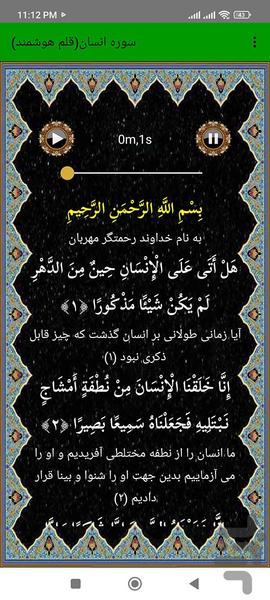 11:12 PM
43
سوره انسان(قلم هوشمند)
0m,1s
بِسْمِ اللَّهِ الرَّحْمَنِ الرَّحِيمِ
به نام خداوند رحمتگر مهربان
هَلْ أَتَى عَلَى الْإِنْسَانِ حِينٌ مِنَ الدَّهْرِ
لَمْ يَكُنْ شَيْئًا مَذْكُورًا ﴿۱﴾
آیا زمانی طولانی بر انسان گذشت که چیز قابل
ذکری نبود (۱)
إِنَّا خَلَقْنَا الْإِنْسَانَ مِنْ نُطْفَةٍ أَمْشَاجٍ
نَبْتَلِيهِ فَجَعَلْنَاهُ سَمِيعًا بَصِيرًا ﴿۲﴾
ما انسان را از نطفه مختلطی آفریدیم و او را
می آزماییم بدین جهت او را شنوا و بینا قرار
دادیم (۲)